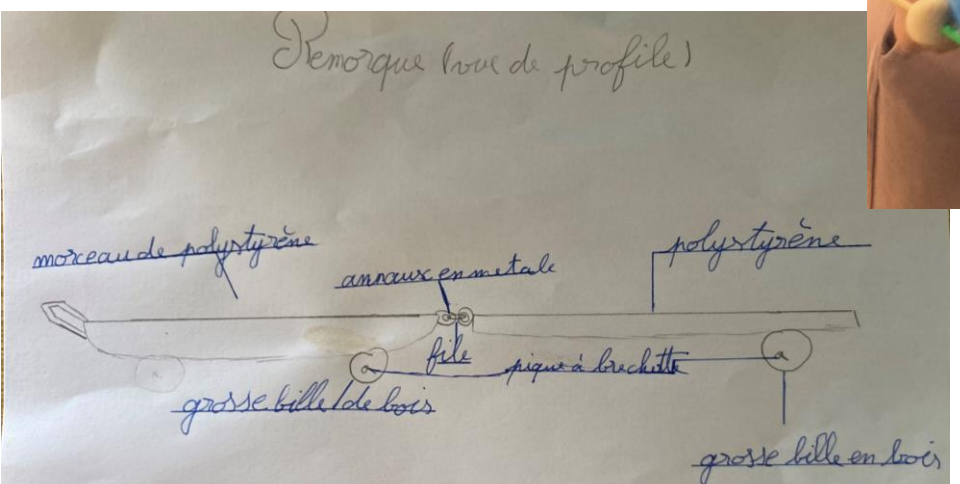 Remorque (vue de profile)
morceau de polystyrène
polystyrène
annaux en metale
file
pique à brechette
grosse bille / de bois
grosse bille en bois